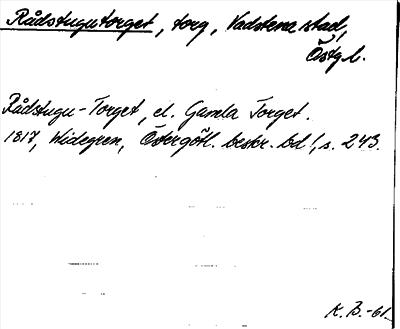 Rådstugutorget, torg, Vadstena stad,
Östg.l.
Rådstugu-Torget, el. Gamla Torget.
1817, Widegren, Östergötl. beskr. bd 1, s. 243.
K. B. -61